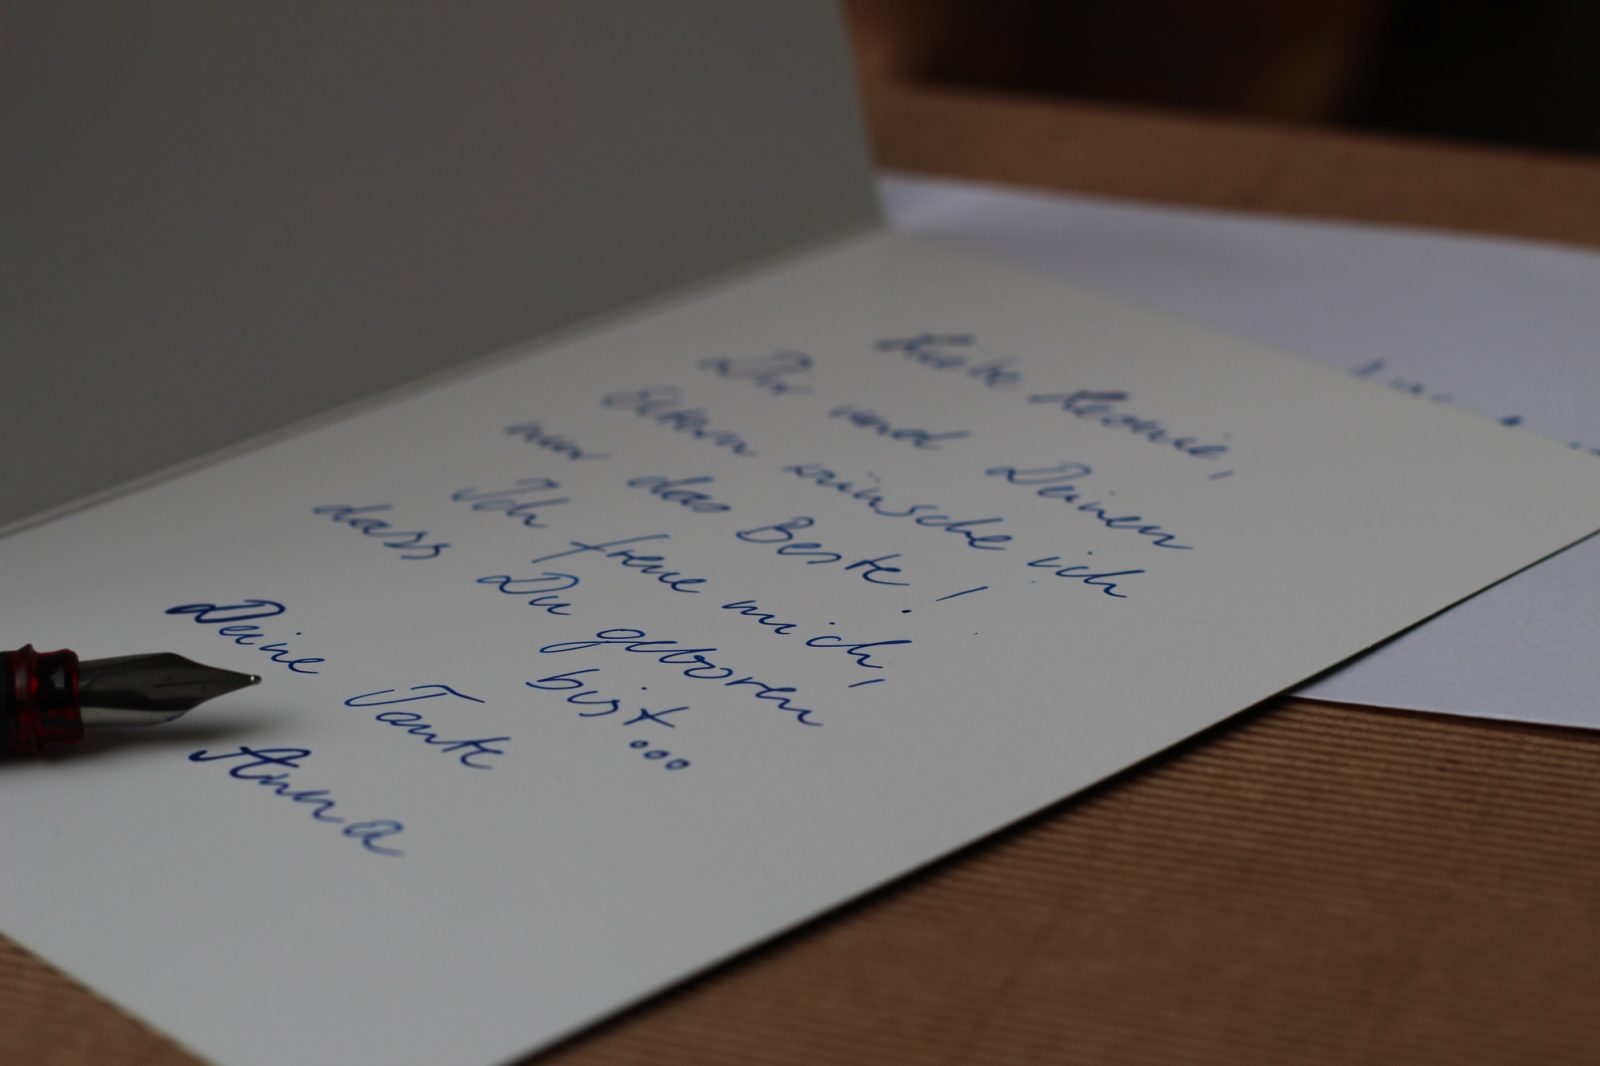 Liebe Leonie,
Dir und Deinen
Eltern wünsche ich
nur das Beste!
Ich freue mich,
dass Du geboren
bist...
Deine Tante
Anna